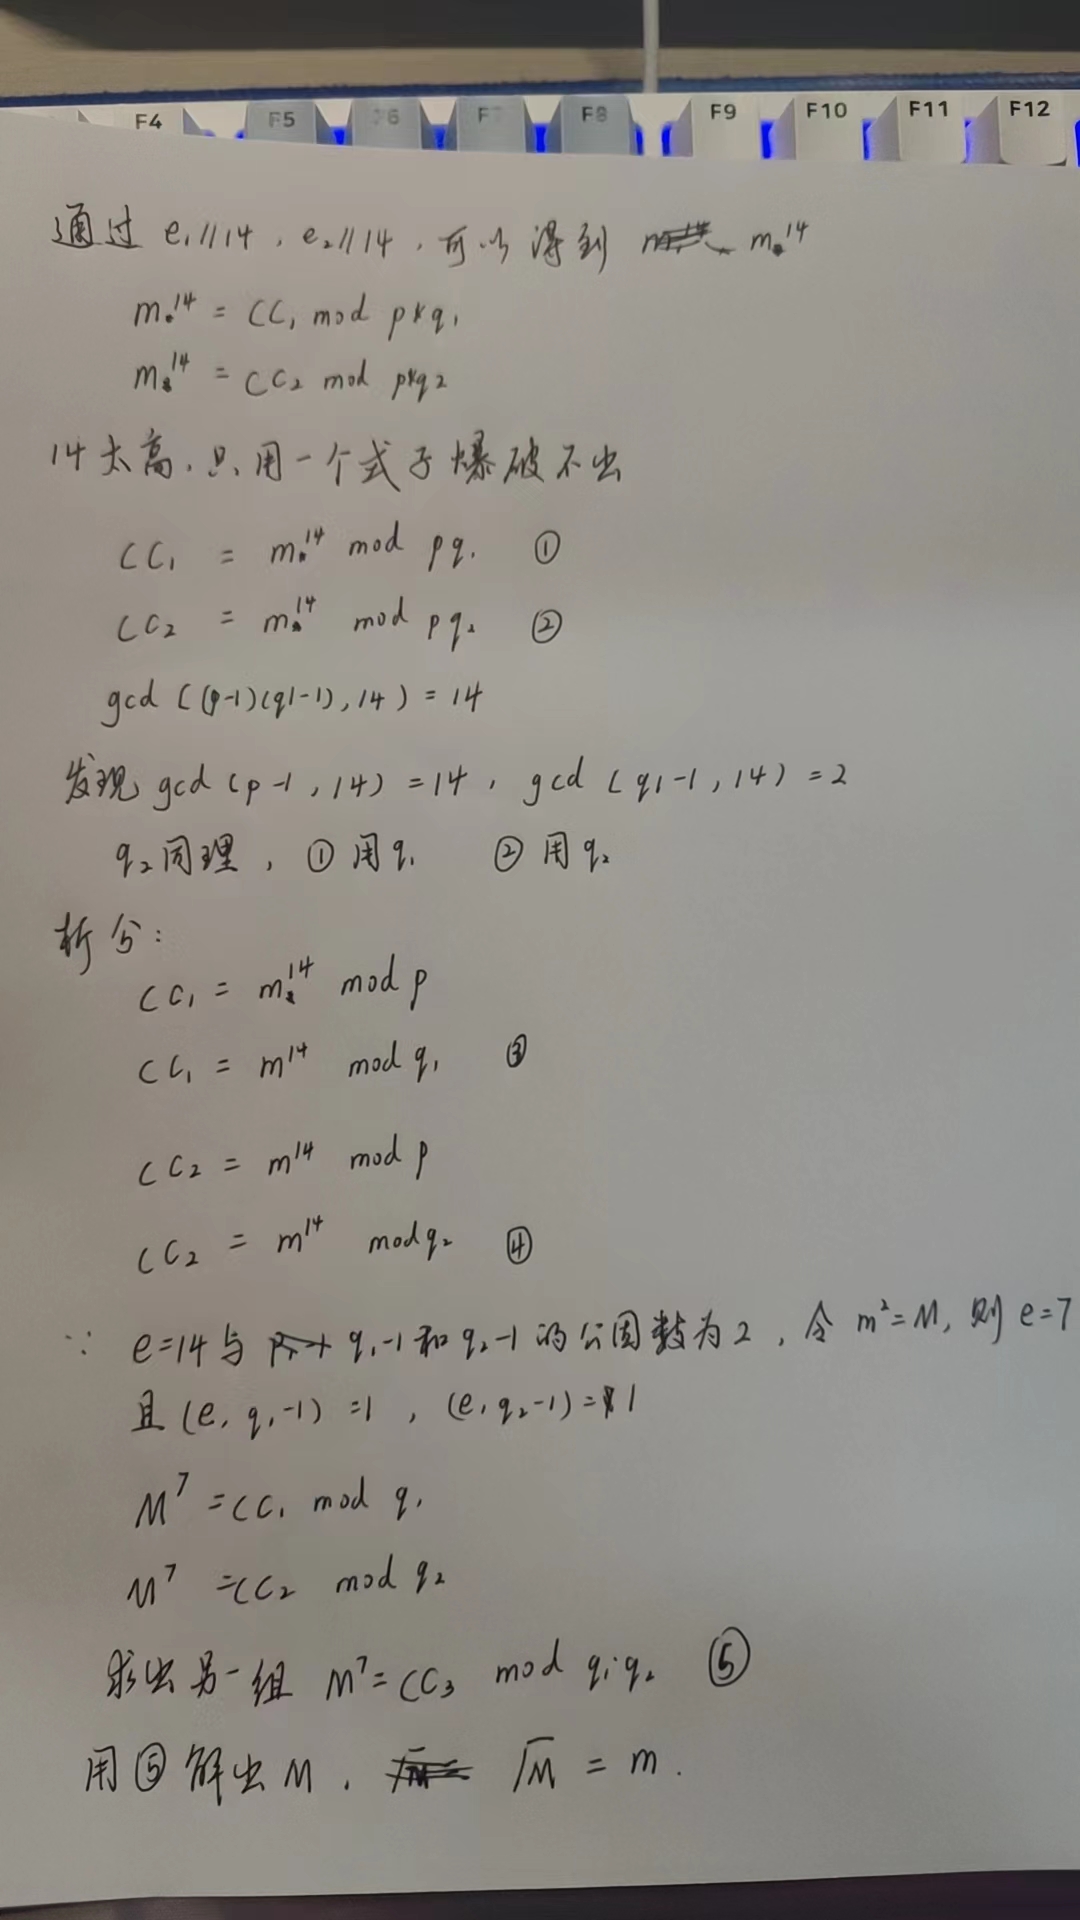 F4 F5 F6 F7 F8 F9 F10 F11 F12
通过 e₁//14，e₂//14，可以得到 m^14
m^14 = CC₁ mod p*q₁
m^14 = CC₂ mod p*q₂
14太高，只用一个式子爆破不出
CC₁ = m^14 mod pq₁ ①
CC₂ = m^14 mod pq₂ ②
gcd((p-1)(q1-1),14) = 14
发现 gcd(p-1,14)=14，gcd(q1-1,14)=2
q₂同理，①用q₁ ②用q₂
拆分：
CC₁ = m^14 mod p
CC₁ = m^14 mod q₁ ③
CC₂ = m^14 mod p
CC₂ = m^14 mod q₂ ④
∵ e=14与 q₁-1和q₂-1的公因数为2，令 m²=M，则 e=7
且(e, q₁-1)=1，(e, q₂-1)=1
M^7 = CC₁ mod q₁
M^7 = CC₂ mod q₂
求出另一组 M^7 = CC₃ mod q₁·q₂ ⑤
用⑤解出M，√M = m.